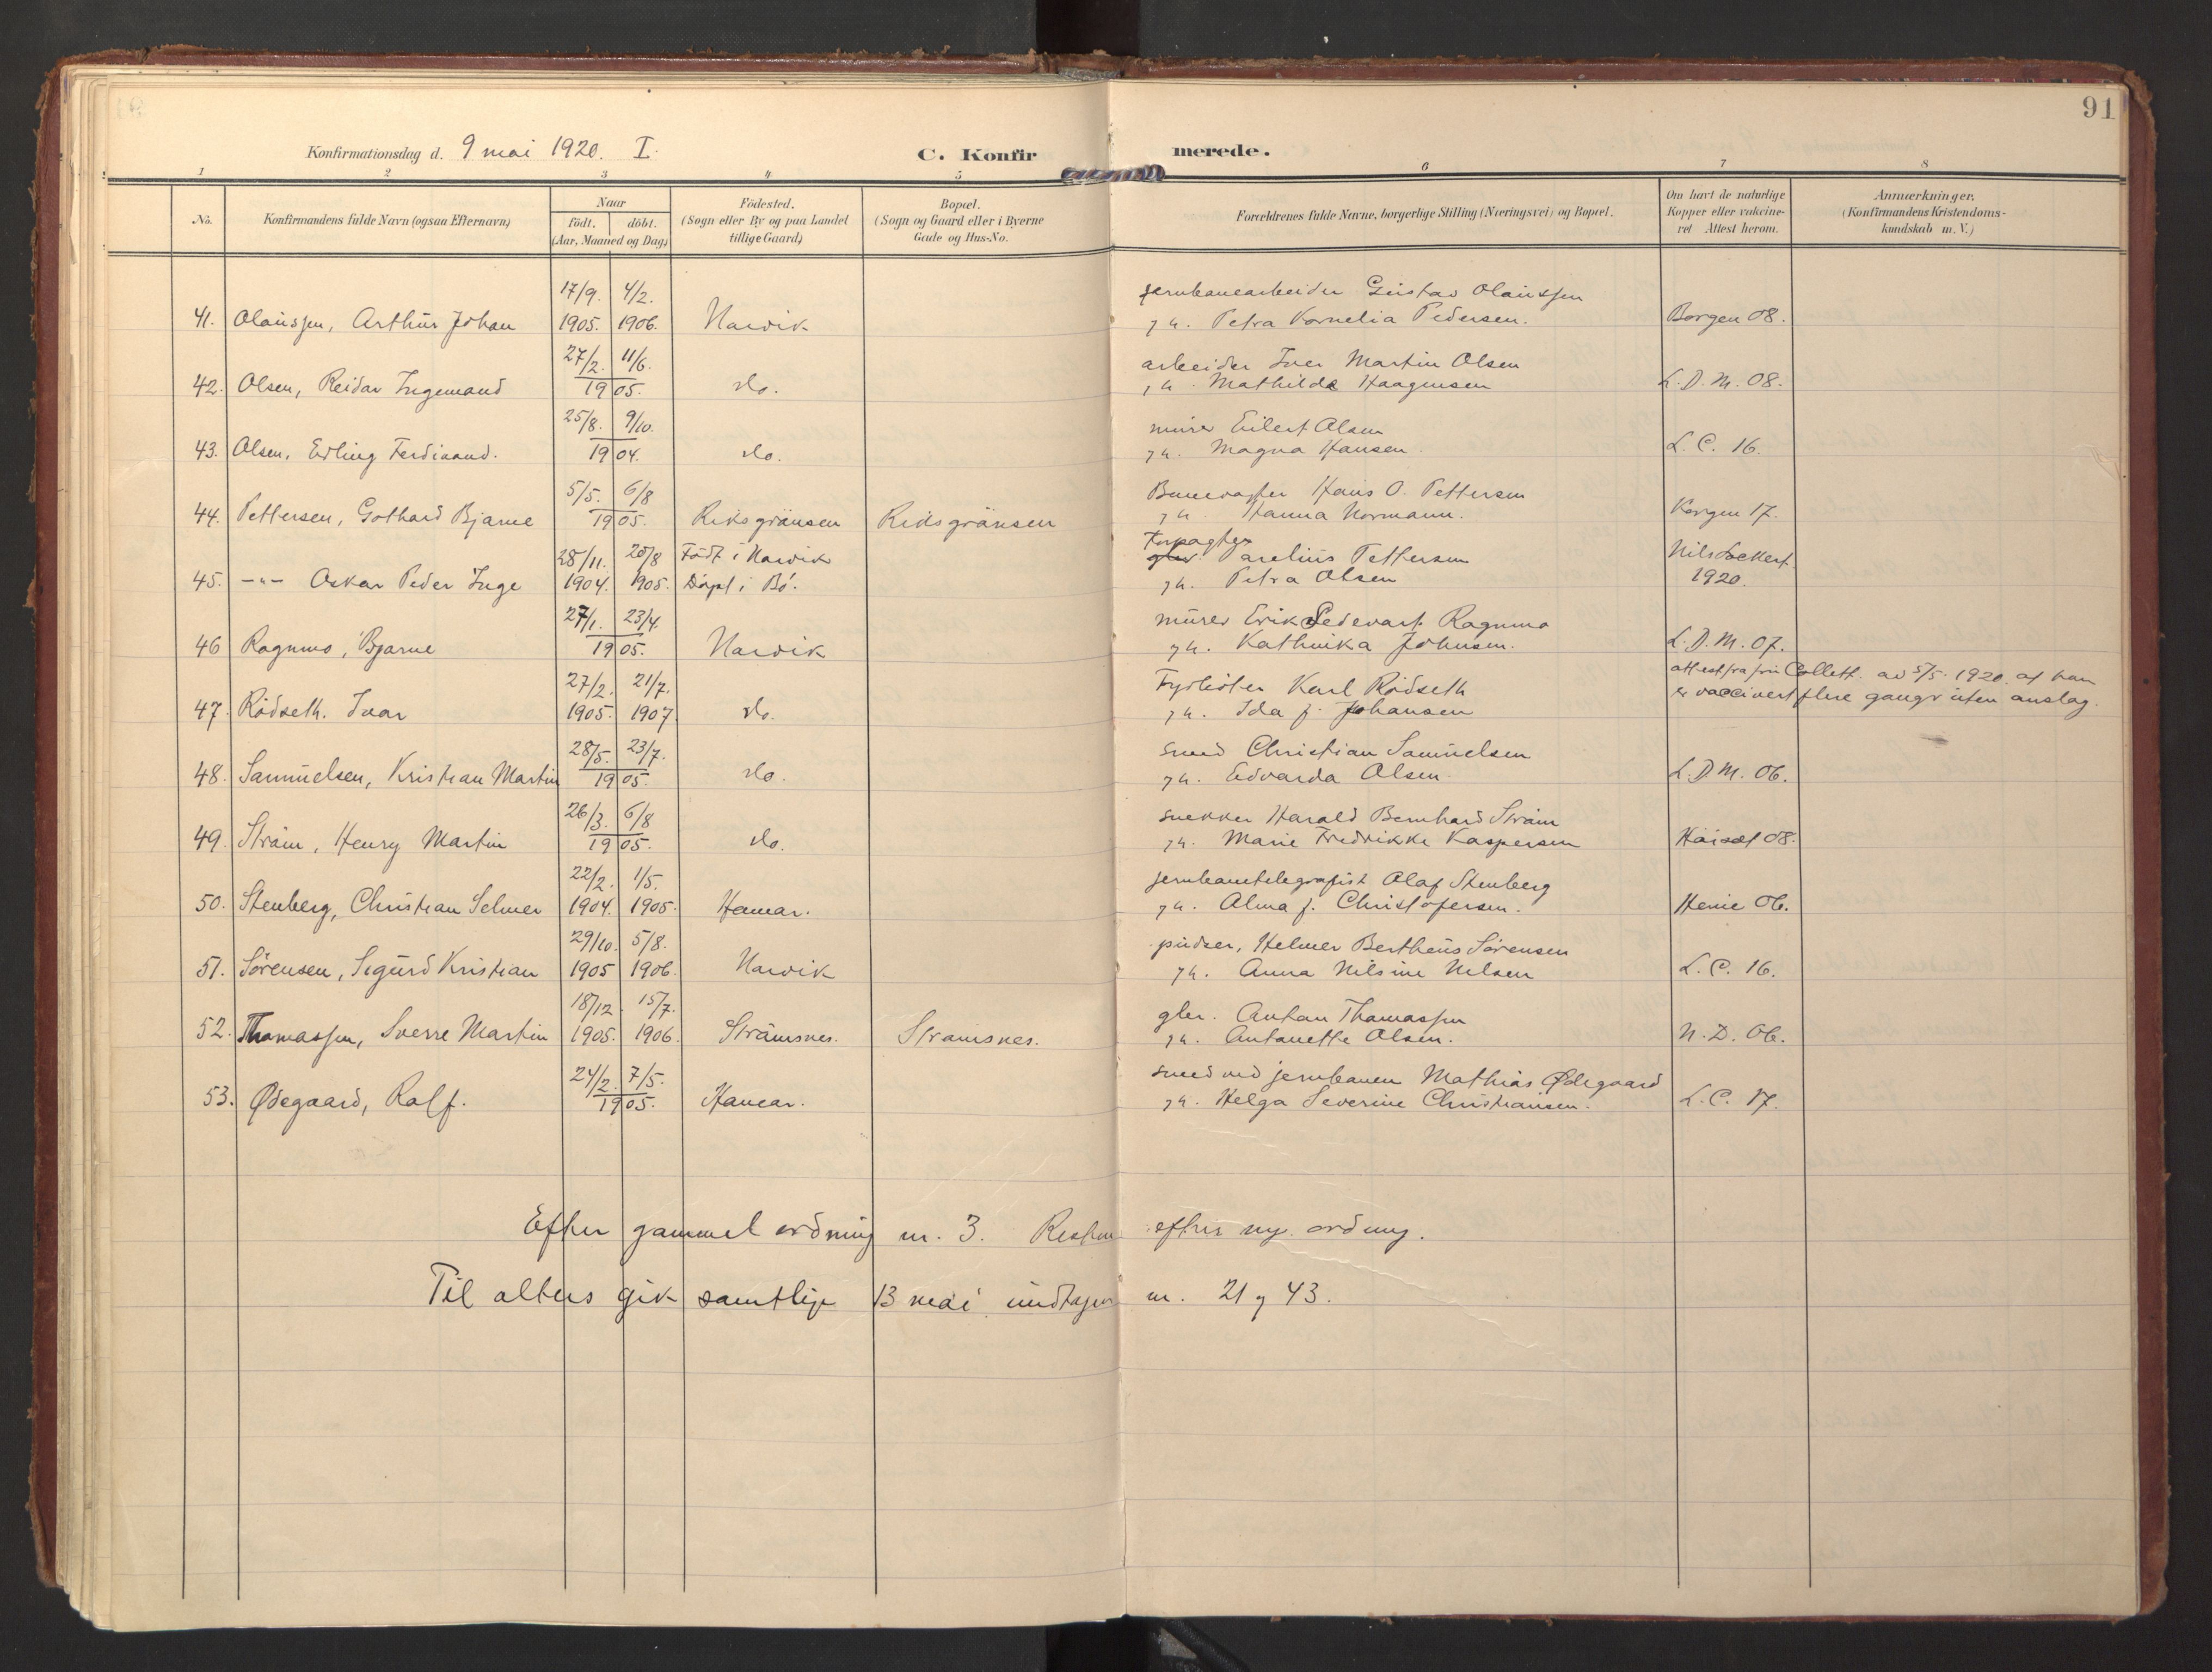 91
Konfirmationsdag d. 9 mai 1920. I.
C. Konfirmerede.
1 2 3 4 5 6 7 8
No.
Konfirmandens fulde Navn (ogsaa Efternavn)
Naar
født. döbt.
(Aar, Maaned og Dag)
Födested.
(Sogn eller By og paa Landet
tillige Gaard)
Bopæl.
(Sogn og Gaard eller i Byerne
Gade og Hus-No.
Forældrenes fulde Navne, borgerlige Stilling (Næringsvei) og Bopæl.
Om havt de naturlige
Kopper eller vakcine-
ret Attest herom.
Anmærkninger.
(Konfirmandens Kristendoms-
kundskab m. V.)
17/9. 4/2. jernbanearbeider Gustav Olaussen
41. Olaussen, Arthur Johan 1905. 1906. Narvik Petra Kornelia Pedersen. Borgen 08.
27/2. 11/6. arbeider Iver Martin Olsen
42. Olsen, Reidar Ingemand 1905. do. Mathilde Haagensen L. D. M. 08.
25/8. 9/10. murer Eilert Olsen
43. Olsen, Erling Ferdinand. 1904. do. Magna Hansen L. C. 16.
5/5. 6/8 Banevogter Hans O. Pettersen
44. Pettersen, Gothard Bjarne 1905. Riksgränsen Riksgränsen Hanna Normann. Korgen 17.
28/11. 20/8 Födt i Narvik Forpagter Parelius Pettersen Nils
45. —"— Oskar Peder Inge 1904. 1905. Döpt i Bö. Petra Olsen 1920.
27/1. 23/4. murer Erik Sedevart Ragnmo
46 Ragnmo, Bjarne 1905. Narvik Kathinka Johnsen. L. D. M. 07.
27/2. 21/7. Fyrböter Karl Rödseth attest fra Collett av 5/5. 1920 at han
47. Rödseth. Ivar 1905. 1907 do. Ida f. Johansen er vaccinert flere ganger uten anslag.
28/5. 23/7. smed Christian Samuelsen
48. Samuelsen, Kristian Martin 1905. do. Edvarda Olsen. L. D. M. 06.
26/3. 6/8 snekker Harald Bernhard Ström
49. Ström, Henry Martin 1905. do. Marie Fredrikke Kaspersen 08.
22/2. 1/5. jernbanetelegrafist Olaf Stenberg
50. Stenberg, Christian Selmer 1904. 1905. Hamar. Alma f. Christofersen. Henie 06.
29/10. 5/8. pudser, Helmer Bertheus Sörensen
51. Sörensen, Sigurd Kristian 1905 1906. Narvik Anna Nilsine Nilsen L. C. 16.
18/12. 15/7. gbr. Anton Thomassen
52. Thomassen, Sverre Martin 1905. 1906. Strömsnes. Strömsnes. Antonette Olsen. N. D. 06.
24/2. 7/5. smed ved jernbanen Mathias Ødegaard
53. Ødegaard, Ralf. 1905. Hamar. Helga Severine Christiansen. L. C. 17.
Efter gammel ordning nr. 3. Resten efter ny ordning.
Til alters gik samtlige 13 mai undtagen nr. 21 og 43.